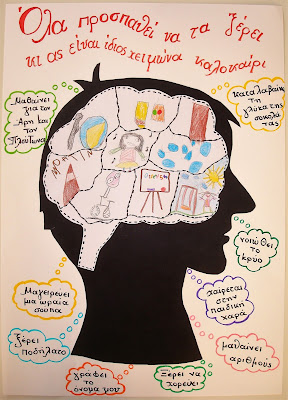 Όλα προσπαθεί να τα ξέρει
κι ας είναι ίδιος χειμώνα καλοκαίρι
Μαθαίνει
για τον
Άρη και
τον
Πλούτωνα
καταλαβαίνει
τη
γλύκα της
σοκολά
τας
νοιώθει το
κρύο
Μαγειρεύει
μια ωραία
σούπα
χαίρεται
στην
παιδική
χαρά
ξέρει
ποδήλατο
μαθαίνει
αριθμούς
γράφει το
όνομα μου
Ξέρει να
χορεύει